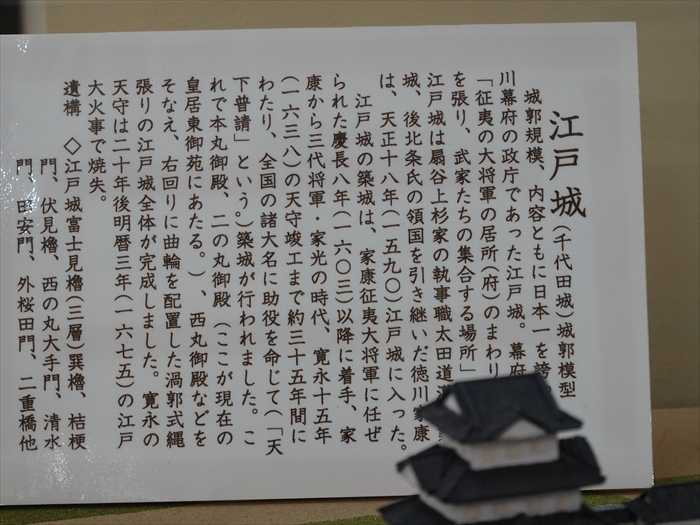 江戸城(千代田城)城郭模型
城郭規模、内容ともに日本一を誇
川幕府の政庁であった江戸城。幕府
「征夷の大将軍の居所(府)のまわり
を張り、武家たちの集合する場所」
江戸城は扇谷上杉家の執事職太田道
城、後北条氏の領国を引き継いだ徳川家康
は、天正十八年(一五九〇)江戸城に入った。
江戸城の築城は、家康征夷大将軍に任ぜ
られた慶長八年(一六〇三)以降に着手、家
康から三代将軍・家光の時代、寛永十五年
(一六三八)の天守竣工まで約三十五年間に
わたり、全国の諸大名に助役を命じて(「天
下普請」という。)築城が行われました。こ
れで本丸御殿、二の丸御殿(ここが現在の
皇居東御苑にあたる。)、西丸御殿などを
そなえ、右回りに曲輪を配置した渦郭式縄
張りの江戸城全体が完成しました。寛永の
天守は二十年後明暦三年(一六七五)の江戸
大火事で焼失。
遺構 ◇江戸城富士見櫓(三層)巽櫓、桔梗
門、伏見櫓、西の丸大手門、清水
門、田安門、外桜田門、二重橋他